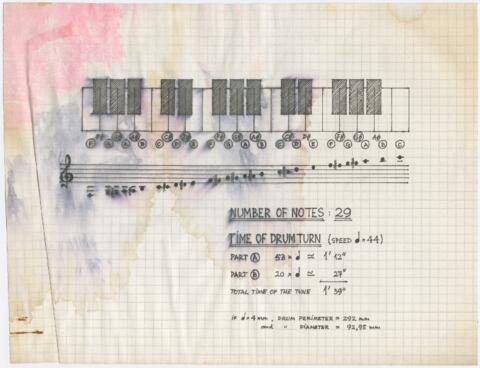 F# G# A# C# D# F# G# A# C# D# F# G# A#
F G A B C D E F G A B C D E F G A B C
NUMBER OF NOTES : 29
TIME OF DRUMTURN (SPEED ♩=44)
PART A 53 × ♩ ≃ 1' 12"
PART B 20 × ♩ ≃ 27"
TOTAL TIME OF THE TUNE 1' 39"
if ♩=4mm, DRUM PERIMETER = 292 mm
and " DIAMETER = 92,95 mm